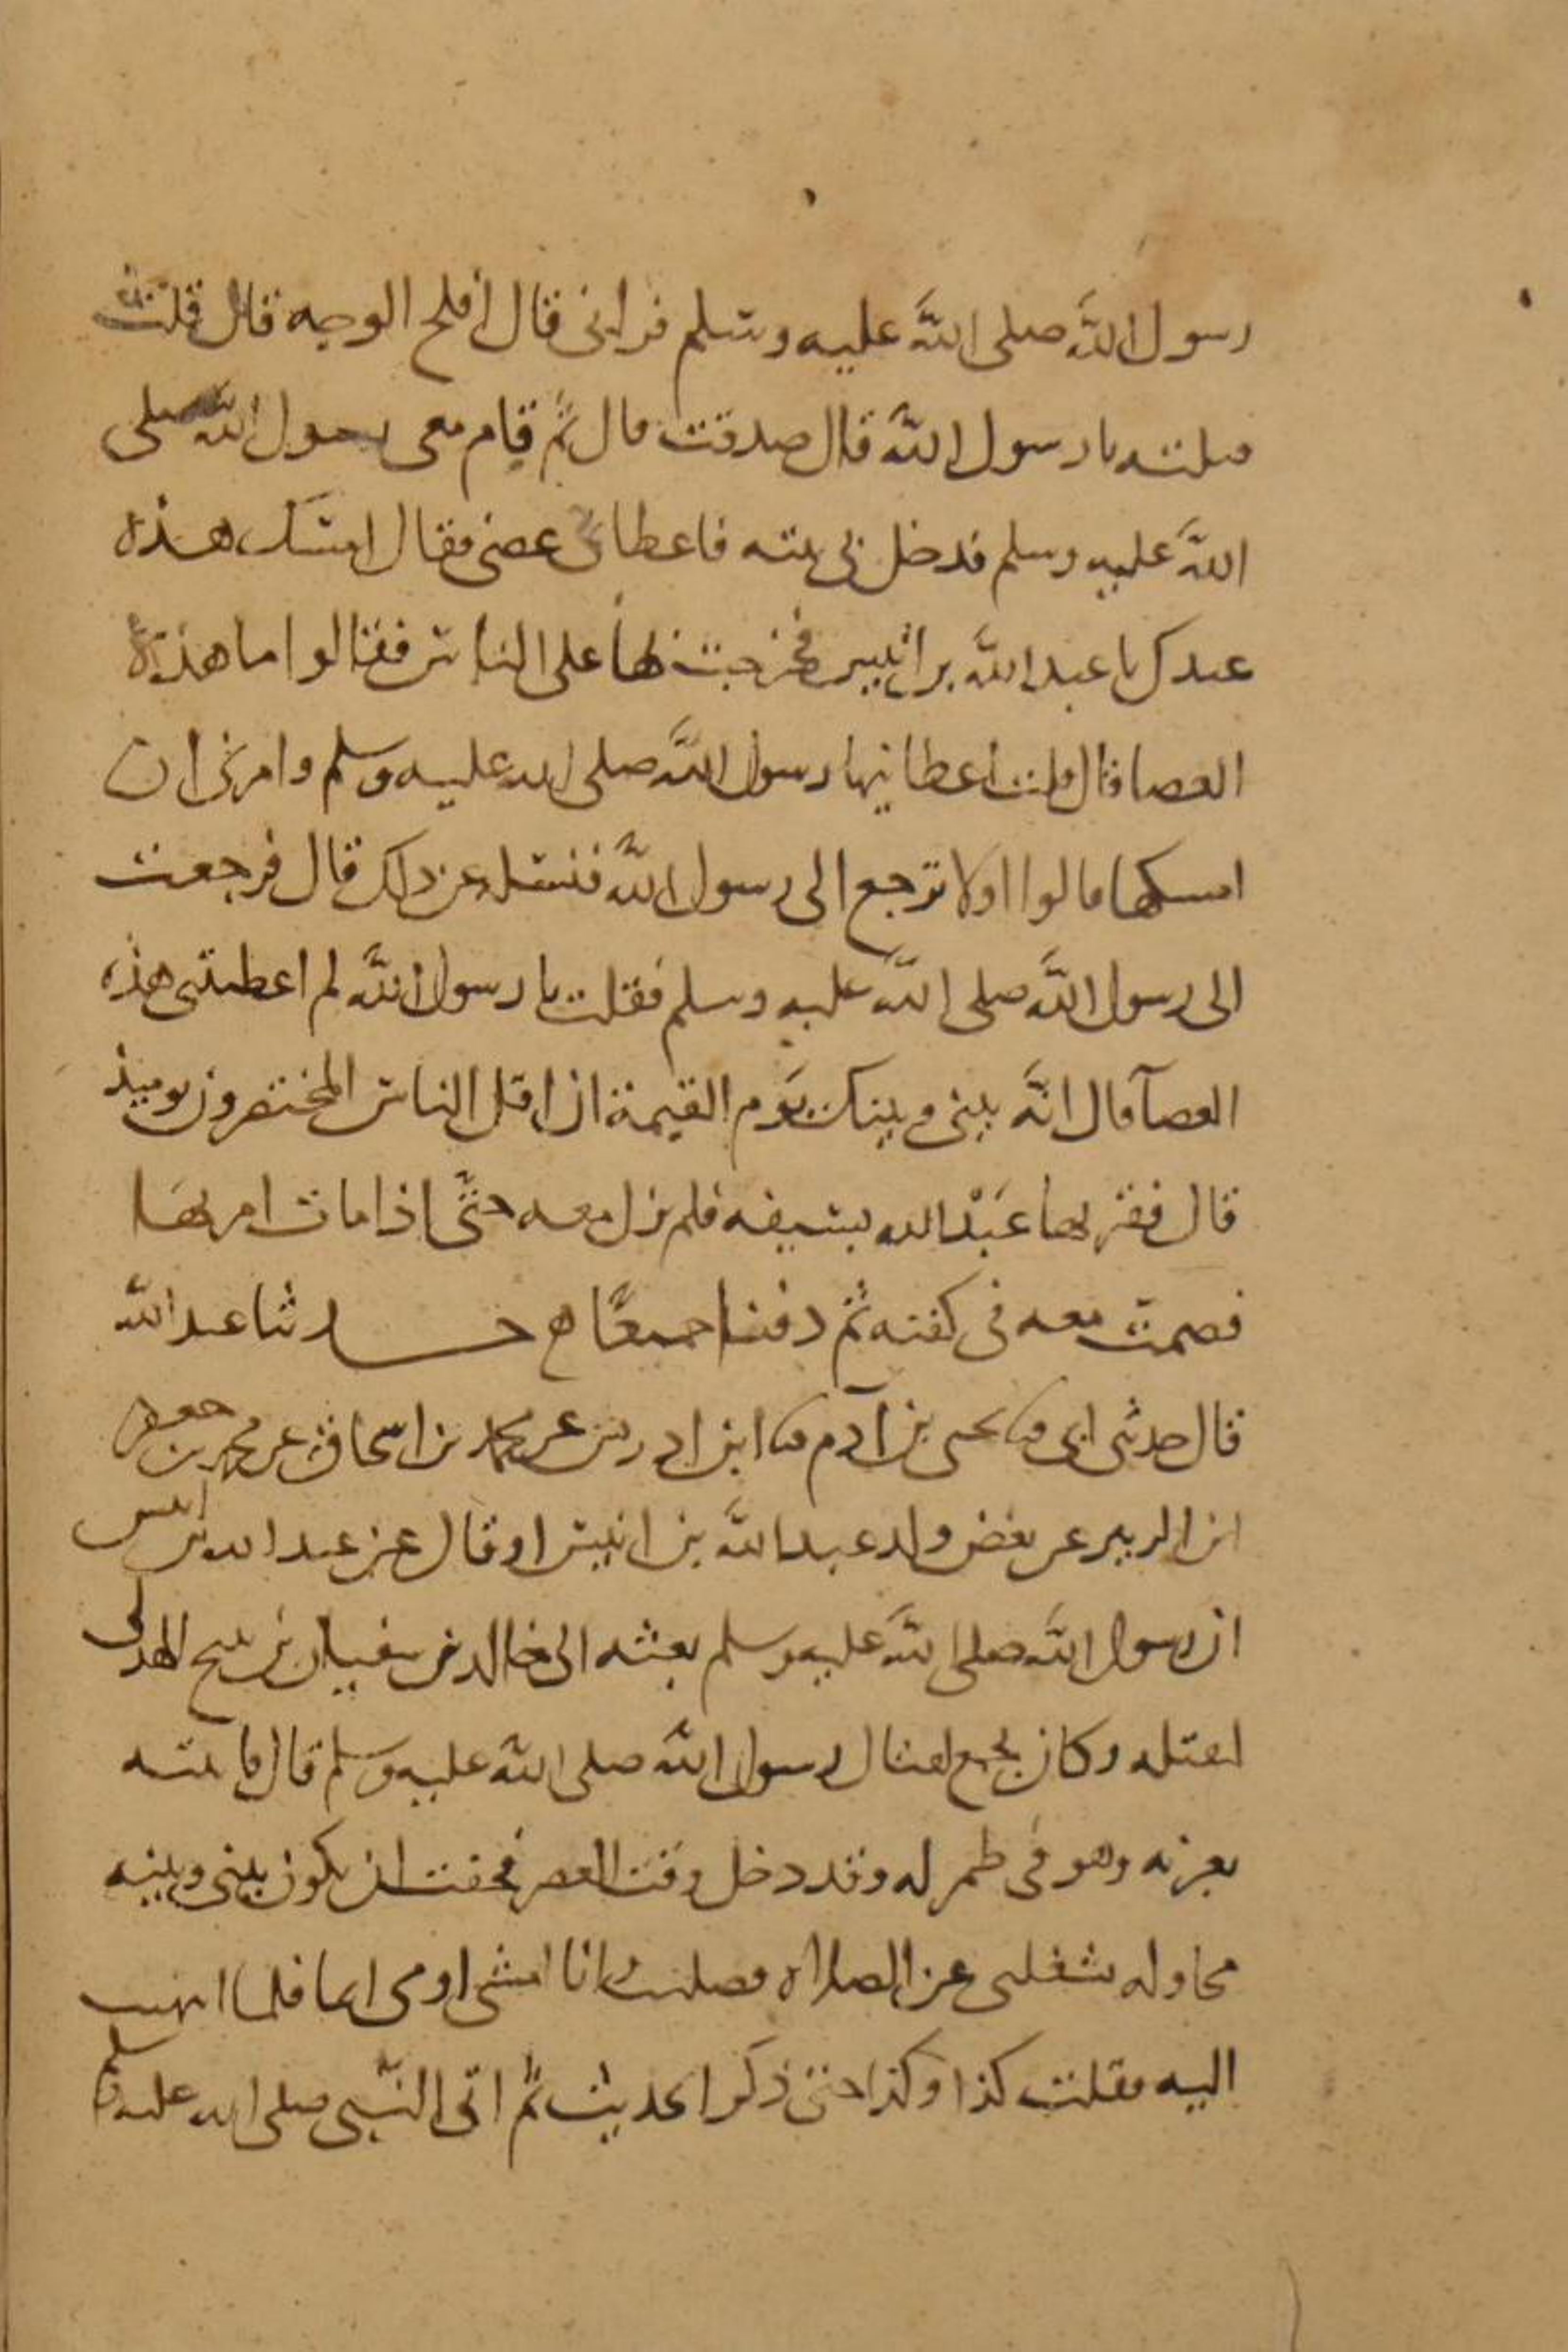 رسول الله صلى الله عليه وسلم فراني قال افلح الوجه قال قلت
قتلته يا رسول الله قال صدقت قال ثم قام معي رسول الله صلى
الله عليه وسلم فدخل بي بيته فاعطاني عصى فقال امسك هذه
عندك يا عبد الله بن انيس فخرجت بها على الناس فقالوا ما هذه
العصا قال قلت اعطانيها رسول الله صلى الله عليه وسلم وامرني ان
امسكها قالوا اولا ترجع الى رسول الله فنسئله عن ذلك قال فرجعت
الى رسول الله صلى الله عليه وسلم فقلت يا رسول الله لم اعطيتني هذه
العصا قال انه بيني وبينك يوم القيمة ان اقل الناس المختصرون يوميذ
قال فقرنها عبد الله بسيفه فلم تزل معه حتى اذا مات امر بها
فصمت معه في كفنه ثم دفنا جميعًا ه حدثنا عبد الله
قال حدثني ابي ثنا يحيى بن آدم ثنا ابن ادريس عن محمد بن اسحاق عن محمد بن جعفر
ابن الزبير عن بعض ولد عبد الله بن انيس او قال عن عبد الله بن انيس
ان رسول الله صلى الله عليه وسلم بعثه الى خالد بن سفيان بن نبيح الهذلي
ليقتله وكان يجمع لقتال رسول الله صلى الله عليه وسلم قال فاتيته
بعرنه وهو في ظهر له وقد دخل وقت العصر فخفت ان يكون بيني وبينه
محاوله تشغلني عن الصلاه فصليت وانا امشي اومي ايما فلما انتهيت
اليه فقلت كذا وكذا حتى ذكر الحديث ثم اتى النبي صلى الله عليه وسلم